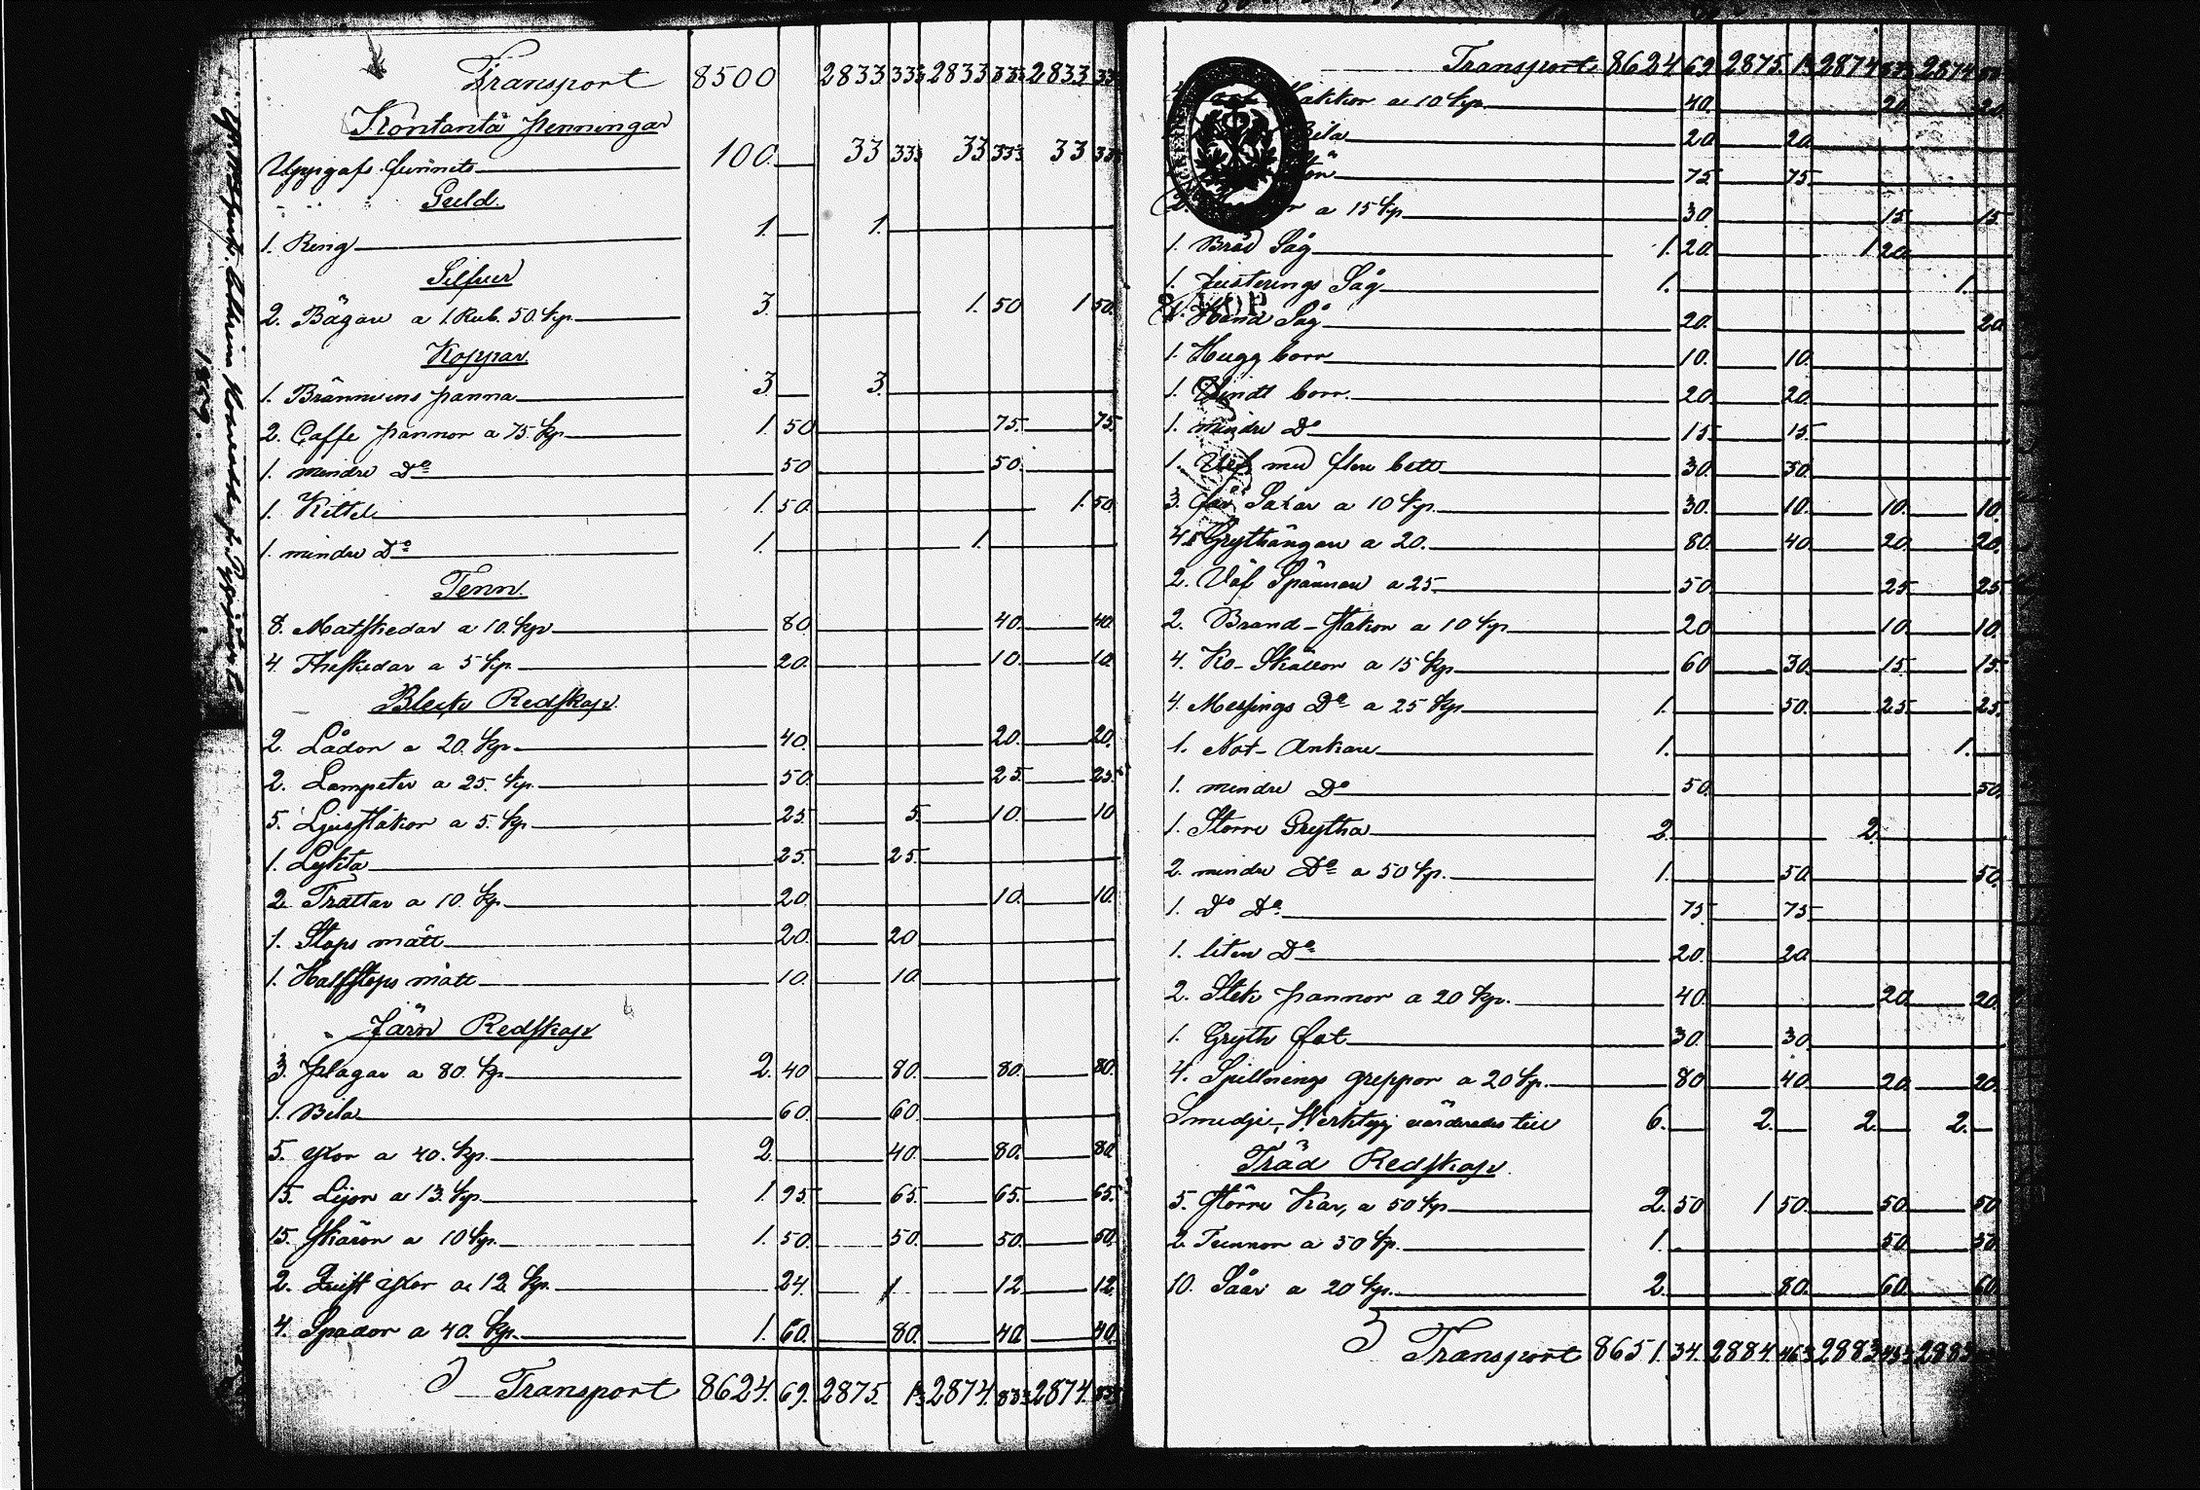 Transport 8500 2833 33⅓ 2833 33⅓ 2833 33⅓
Kontanta Penningar
Uppgafs finnits 100. 33 33⅓ 33 33⅓ 33 33⅓
Guld.
1. Ring 1 1.
Silfver
2. Bägare a 1. Rub. 50. Kp. 3. 1. 50 1 50.
Koppar.
1. Bränvins panna 3. 3.
2. Caffe pannor a 75. Kp 1. 50 75. 75.
1. mindre Do 50 50.
1. Kittel 1. 50. 1. 50.
1. mindre Do 1. 1.
Tenn.
8. Matskedar a 10. Kp 80. 40. 40.
4. Theskedar a 5 Kp. 20. 10. 10
Bleck Redskap.
2. Lådor a 20. Kp. 40. 20. 20.
2. Lampeter a 25. Kp. 50. 25. 25.
5. Ljusstakor a 5. Kp 25. 5. 10. 10
1. Lykta 25. 25.
2. Trattar a 10. Kp. 20. 10. 10.
1. Stops mått 20. 20
1. Halfstops mått 10. 10.
Järn Redskap
3. plogar a 80. Kp. 2. 40 80. 80. 80.
1. Bila 60. 60.
5. yxor a 40. Kp. 2. 40. 80. 80
15. Lijor a 13. Kp. 1. 95. 65. 65. 65.
15. skäror a 10 Kp. 1. 50. 50. 50. 50.
2. Quist yxor a 12 Kp. 24. 12 12
4. Spador a 40. Kp. 1. 60. 80. 40. 40.
Transport 8624. 69. 2875. 13 2874. 83⅓ 2874. 83⅓
1859.
Transport 8624 69. 2875. 13 2874 2874
Hakkor a 10 Kp. 40. 20. 20.
Bila 20 20.
75. 75.
2. a 15 Kp 30. 15. 15.
1. Bräd Såg 1. 20. 1 20.
1. Justerings Såg 1. 1.
1. Hand Såg 20. 20
8. KOP
1. Hugg borr 10. 10.
1. Vindt borr. 20. 20.
1. mindre Do 15. 15.
1. med flere bett 30. 30.
3. får Saxar a 10 Kp. 30. 10. 10. 10.
4. Grythängare a 20. 80. 40. 20. 20.
2. Väf Spännare a 25. 50. 25. 25.
2. Brand-stakor a 10 Kp 20 10. 10.
4. Ko-Skällor a 15 Kp 60 30. 15. 15.
4. Messings Do a 25 Kp 1. 50. 25. 25.
1. Not-Ankare 1. 1.
1. mindre Do 50. 50.
1. Större Grytha 2. 2.
2. mindre Do a 50 Kp. 1. 50. 50.
1. Do Do. 75 75
1. liten Do 20. 20
2. Stek pannor a 20 Kp. 40. 20. 20.
1. Gryth fot 30. 30.
4. Spillnings greppor a 20 Kp. 80 40. 20. 20.
Smedje-Werktyg värderades till 6. 2. 2. 2.
Träd Redskap.
5. större Kar, a 50 Kp 2. 50 1 50. 50. 50
2. Tunnor a 50 Kp. 1. 50. 50
10. Såar a 20 Kp. 2. 80. 60. 60.
Transport 8651. 34. 2884. 46⅓ 2883 43⅓ 2883